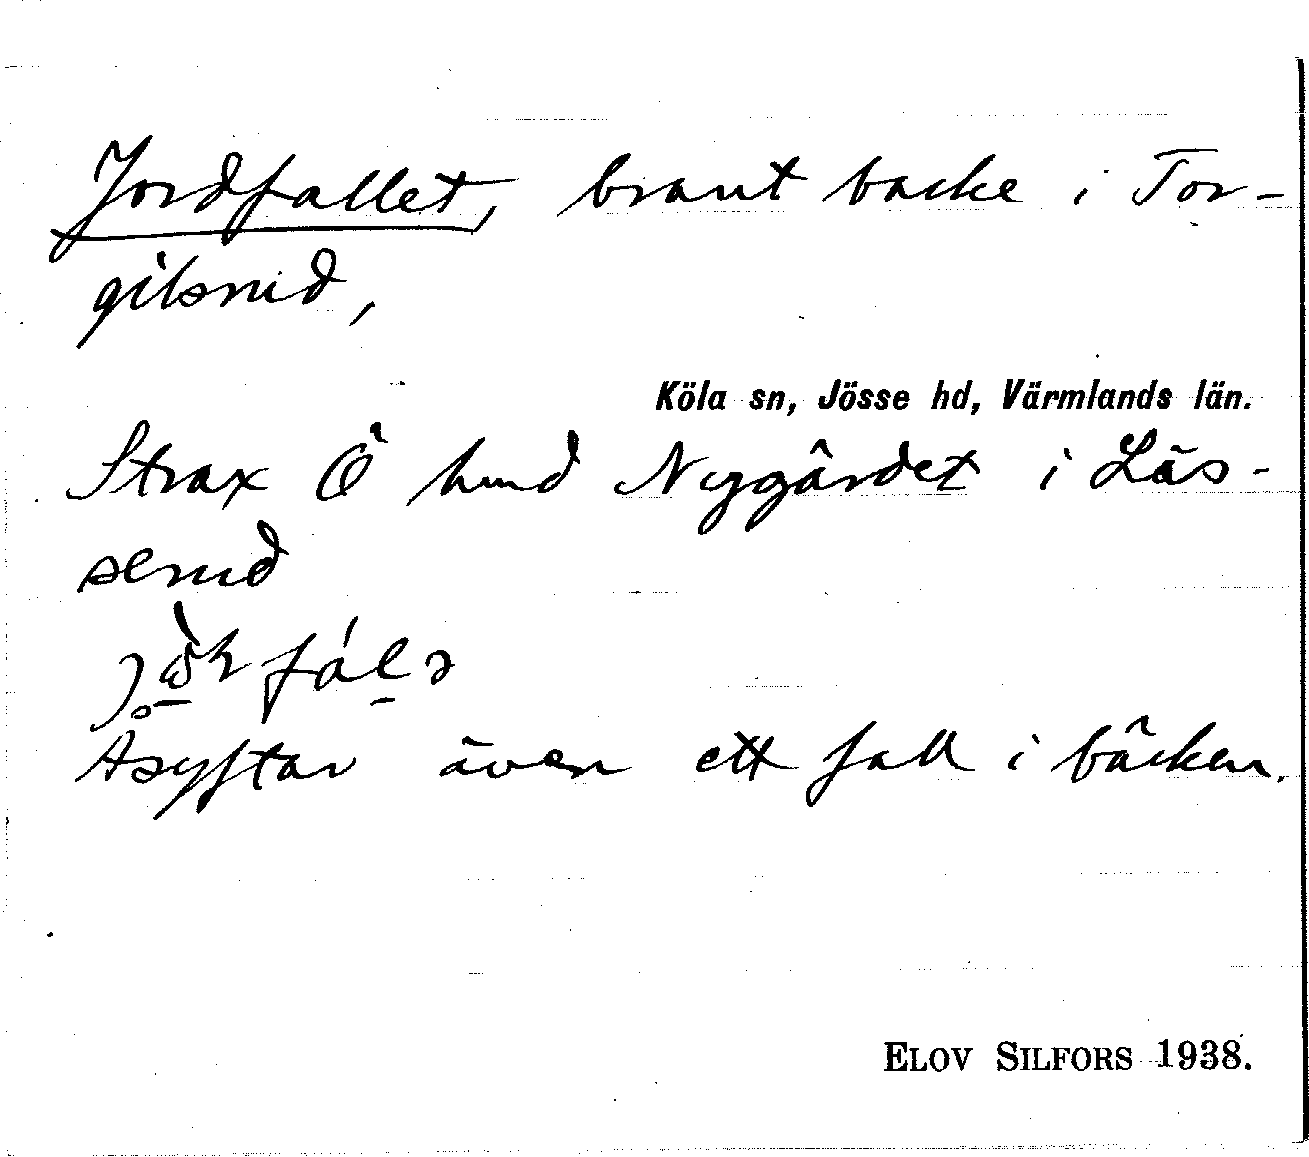 Jordfallet, brant backe i Tor-
gilsrud,
Köla sn, Jösse hd, Värmlands län.
Strax Ö hmd Nygårdet i Läs-
serud
Åsyftar även ett fall i bäcken.
ELOV SILFORS 1938.